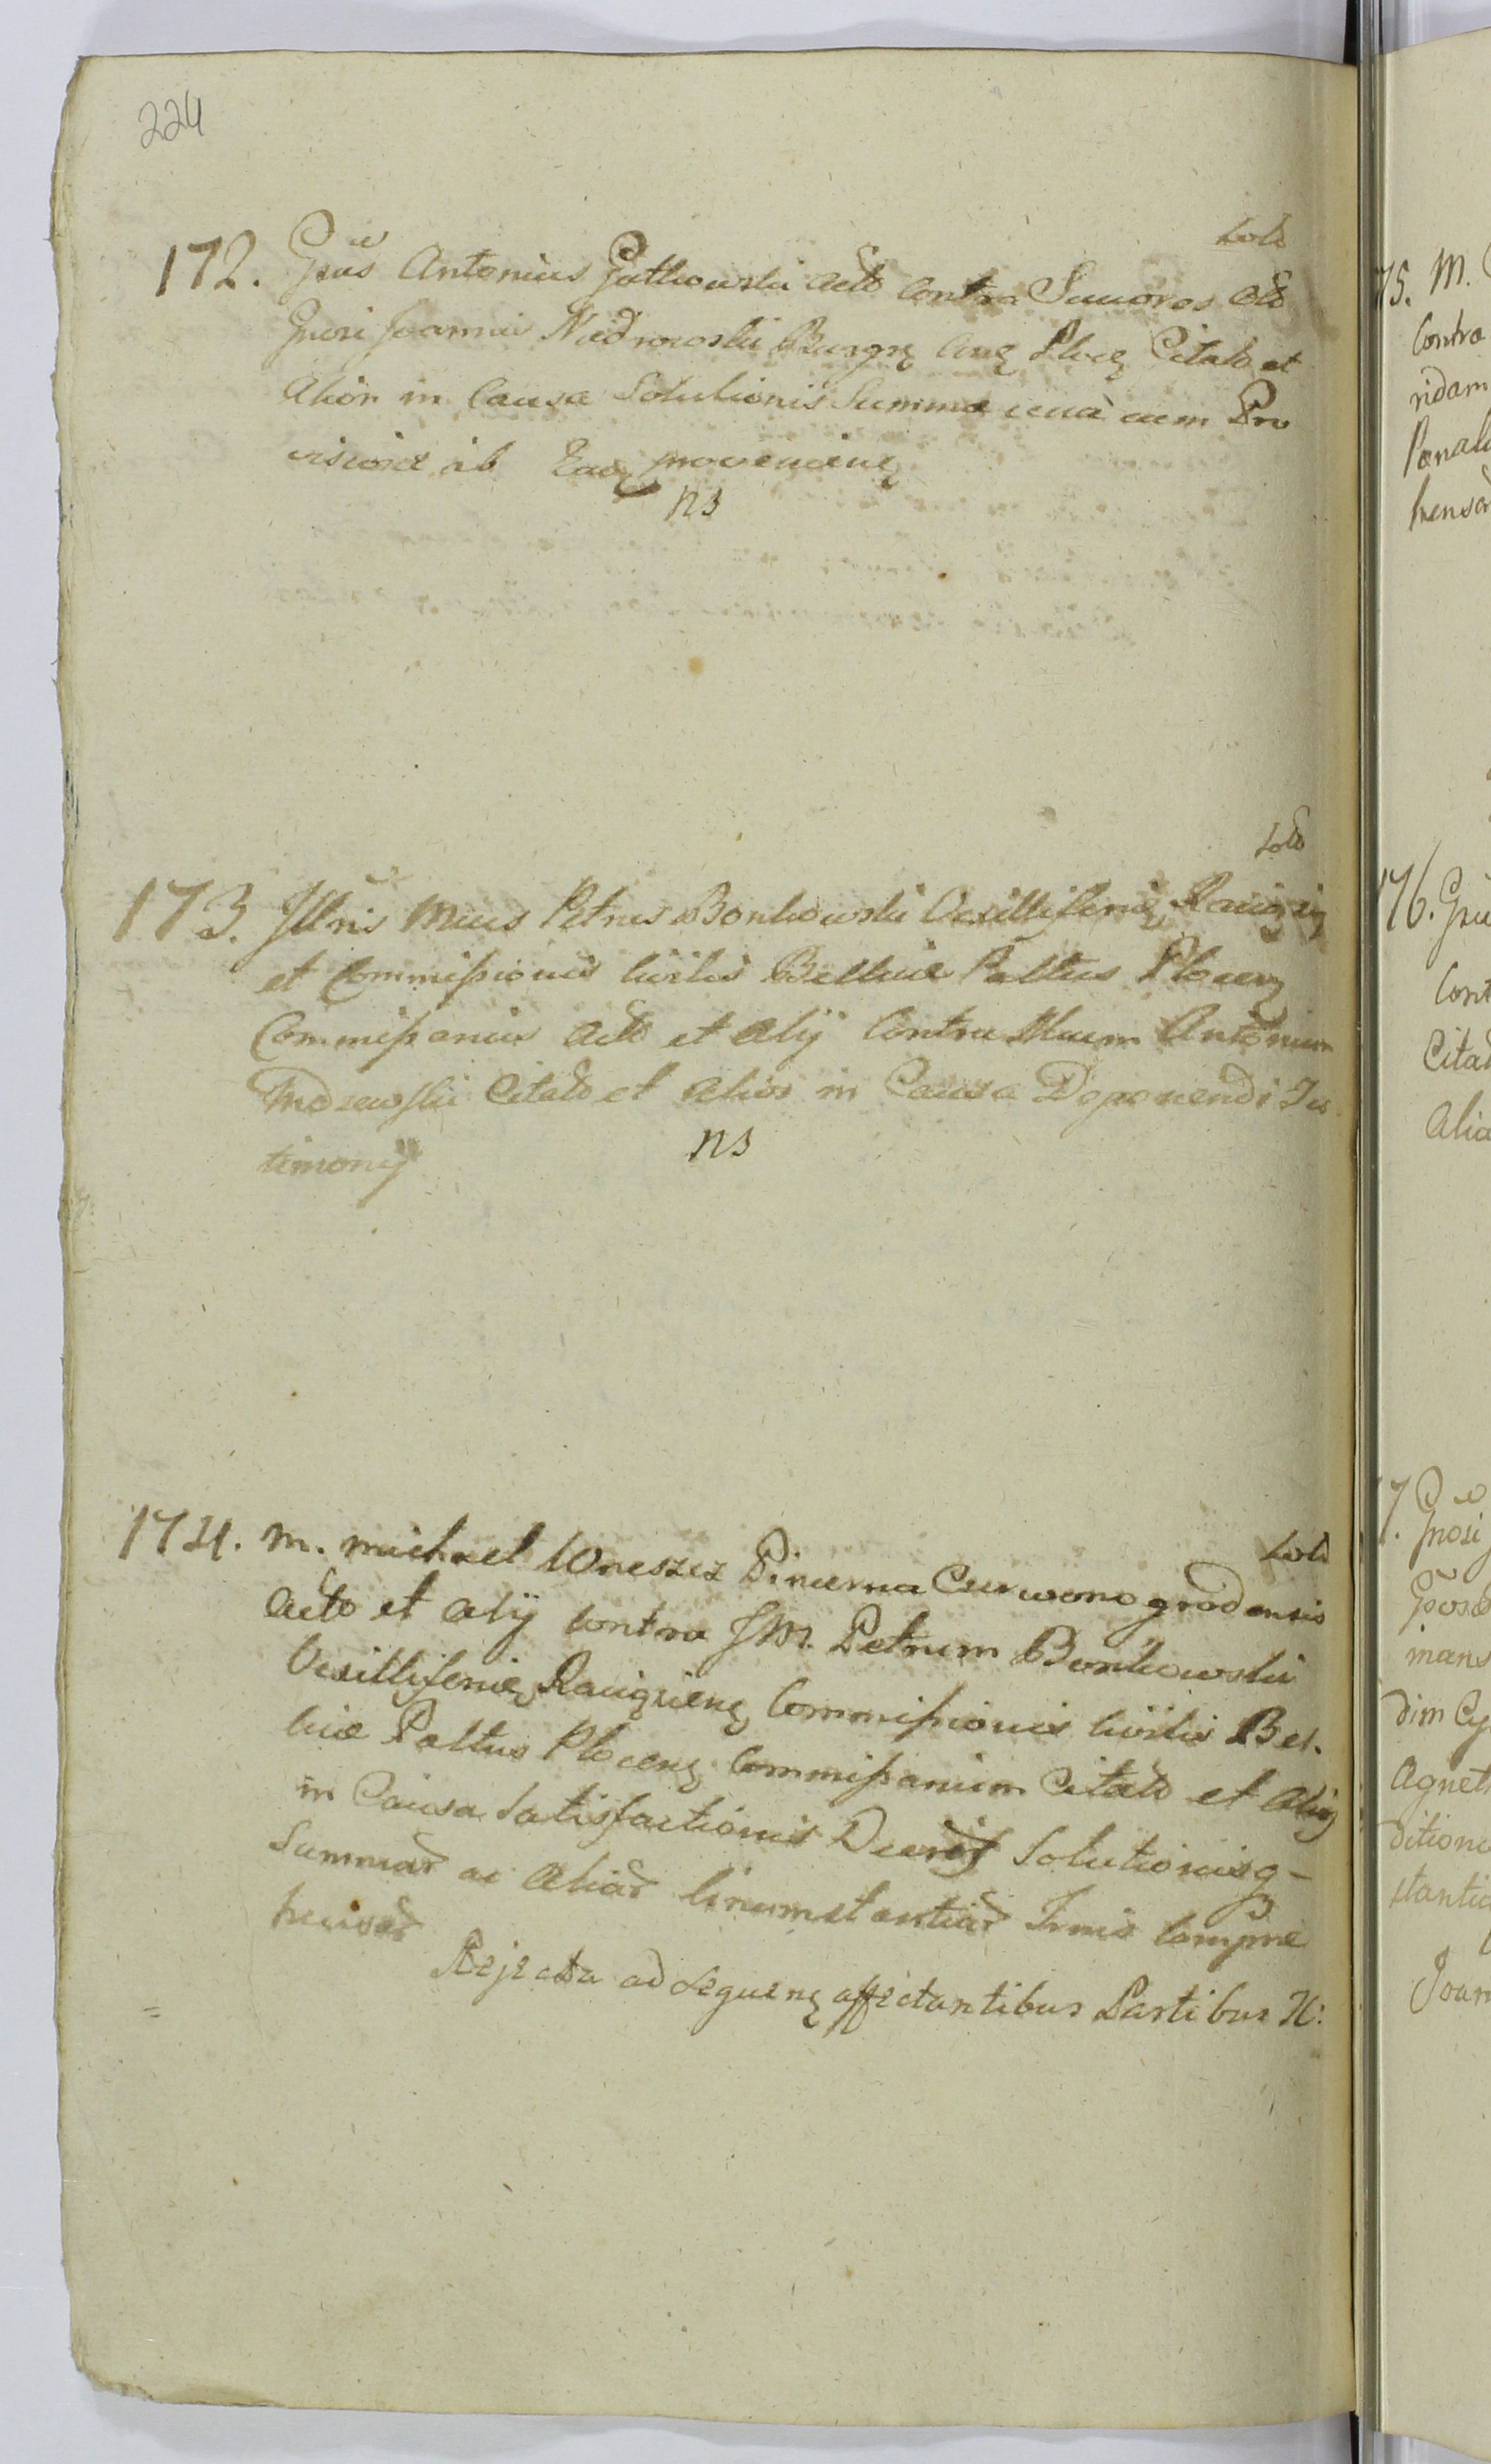 224
Solt
172. Gsus Antonius Gutkowski Acto contra Succores olo
Gnosi Joannis Niedrowski Burgrę Arcę Plocę Citato et
Alior in Causa Solutionis Summæ una cum Pro
visione ab Eadę proveniene
ns
Solt
173. Jllris Mcus Petrus Bonkowski Vexilliferię Ravię
et Commissionis Civilis Bellicæ Paltus Plocenę
Commissarius Acto et Alij Contra Mcum Antonium
Citato et Alios in Causa Deponendi Tes
timonij
ns
Solt
174. M. Michael Wreszcz Pincerna Czerwonogrodensis
Acto et Alij contra JM. Petrum Bonkowski
Vexilliferię Ravięienę Commissionis Civilis Bel.
licæ Paltus Plocenę Commissarium Citato et Alios
in Causa Satisfactionis Decreti Solutionisq
Summar ac Aliar Circumstantiar Trmis Compre
hensar
Rejecta ad sequenę affectantibus Partibus H:
75. M.
Contra
ridam
Panal
hensar
176. Gsu
Cont
Citat
Alia
7.
Gnosi
mans
dim Cy
Agnet
ditione
stantia
Joan